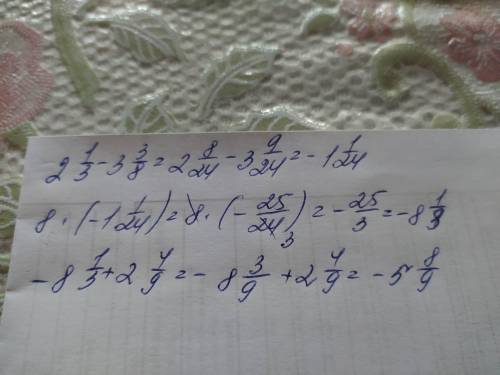 2 1/3 - 3 3/8 = 2 8/24 - 3 9/24 = - 1 1/24
8 · (- 1 1/24) = 8 · (- 25/24 3) = - 25/3 = - 8 1/3
- 8 1/3 + 2 4/9 = - 8 3/9 + 2 4/9 = - 5 8/9